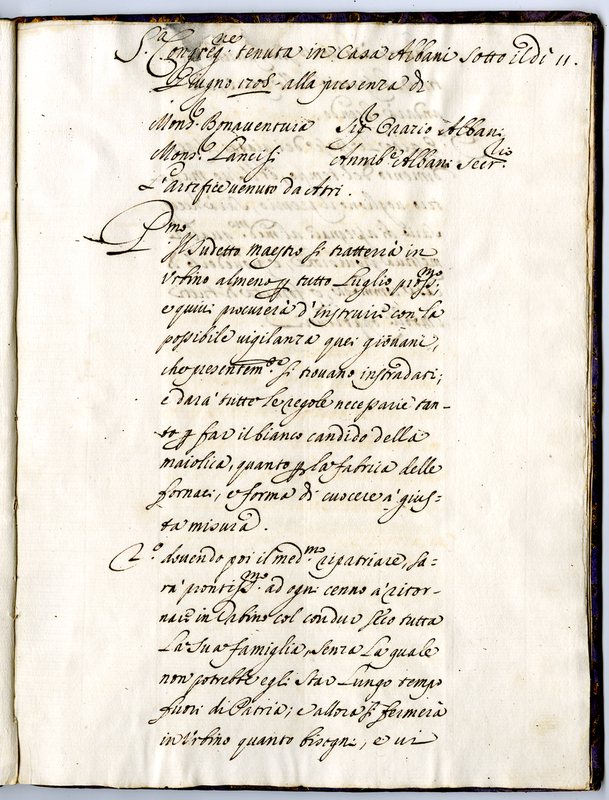 S.a Congreg.ne tenuta in Casa Albani sotto il di 11.
Giugno 1708 - alla presenza di
Mons.r Bonaventura Sig.r Orazio Albani
Mons.r Lancisi Annib.e Albani Secr.rio
L'artefice venuto da Atri.
P.mo
Il sudetto maestro si tratterrà in
Urbino almeno p tutto Luglio pross.mo,
e quivi procurerà d'instruire con la
possibile vigilanza quei giovani,
che presentem.te si trovano instradati;
e darà tutte le regole necessarie tan-
to p far il bianco candido della
maiolica, quanto p la fabrica delle
fornaci, e forma di cuocere à gius=
ta misura.
2.o dovendo poi il med.mo ripatriare, sa=
rà prontiss.mo ad ogni cenno à ritor-
nare in Urbino col condur seco tutta
La sua famiglia, senza La quale
non potrebbe egli star Lungo tempo
fuori di Patria; e allora si fermerà
in Urbino quanto bisogni, e vi